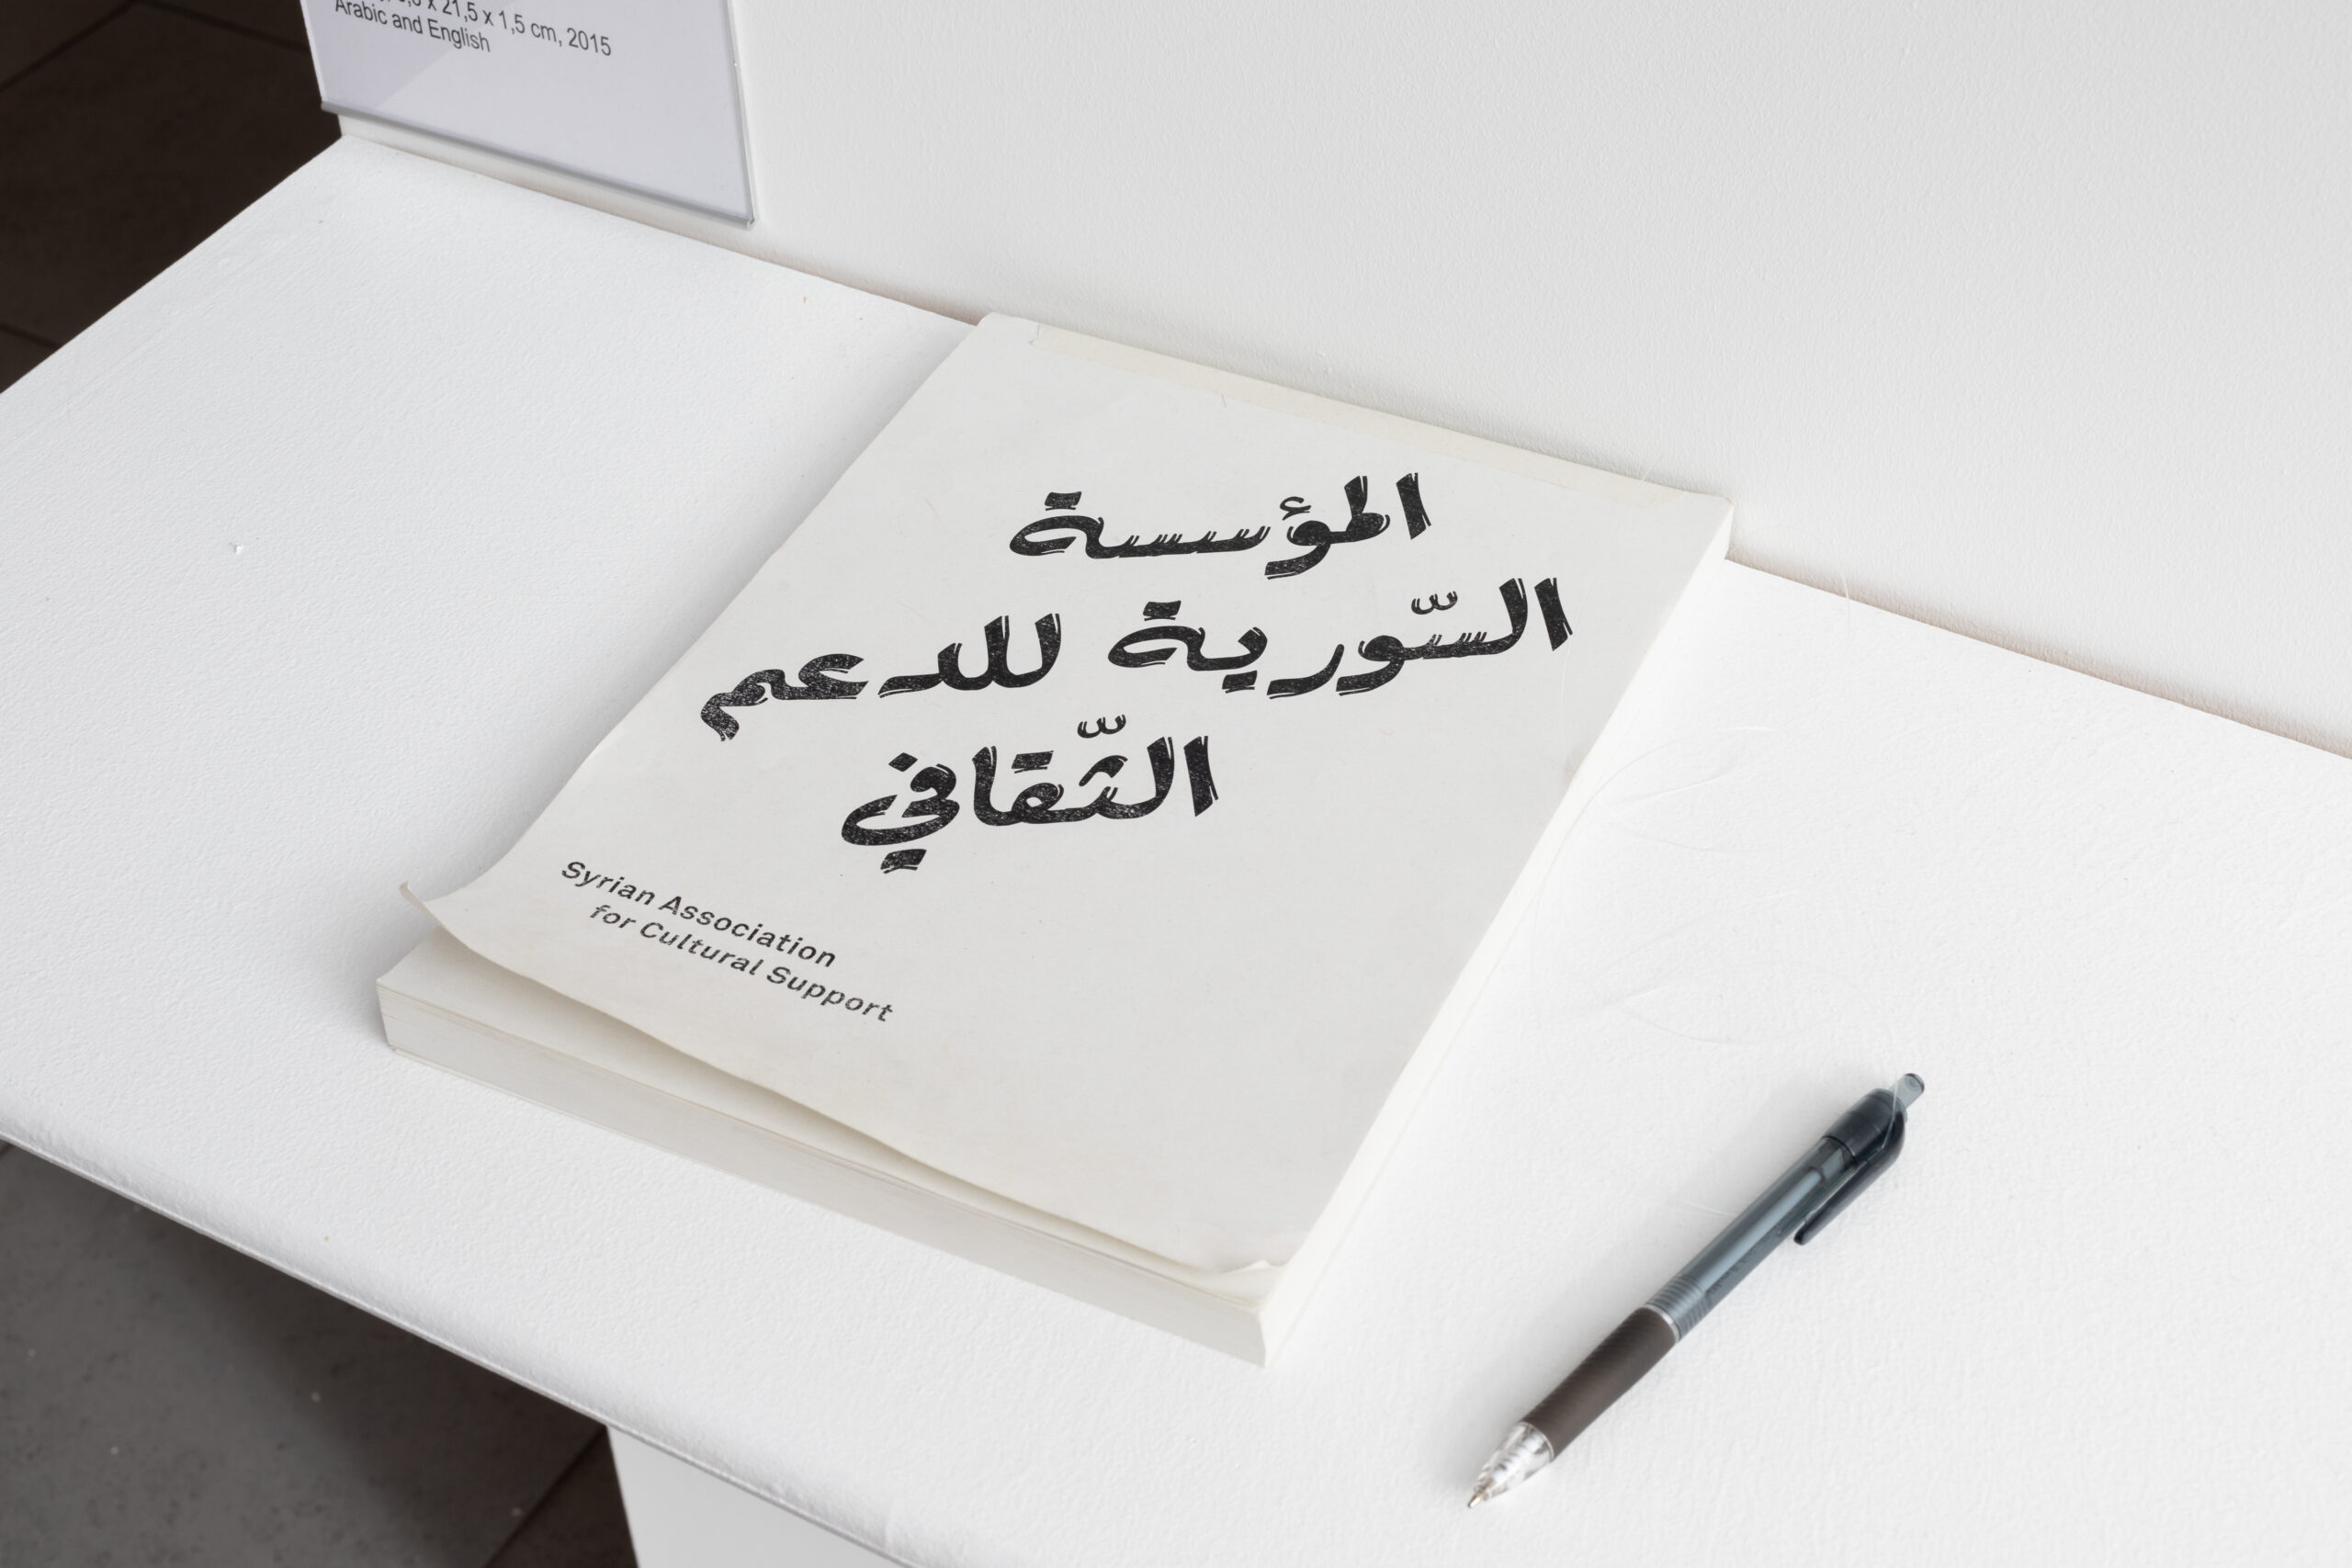 x 21,5 x 1,5 cm, 2015
Arabic and English
المؤسسة
السّورية للدعم
الثّقافي
Syrian Association
for Cultural Support